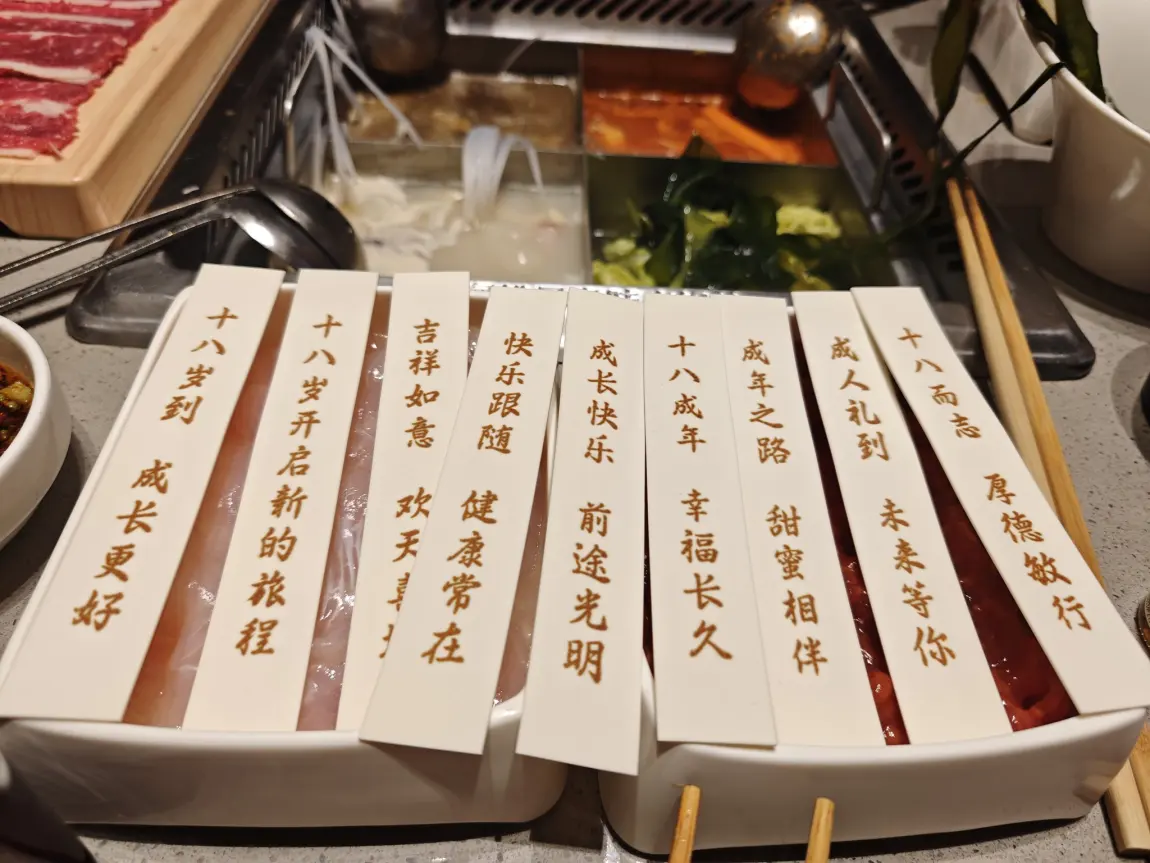 十八岁到 成长更好
十八岁开启新的旅程
吉祥如意 欢天喜
快乐跟随 健康常在
成长快乐 前途光明
十八成年 幸福长久
成年之路 甜蜜相伴
成人礼到 未来等你
十八而志 厚德敏行